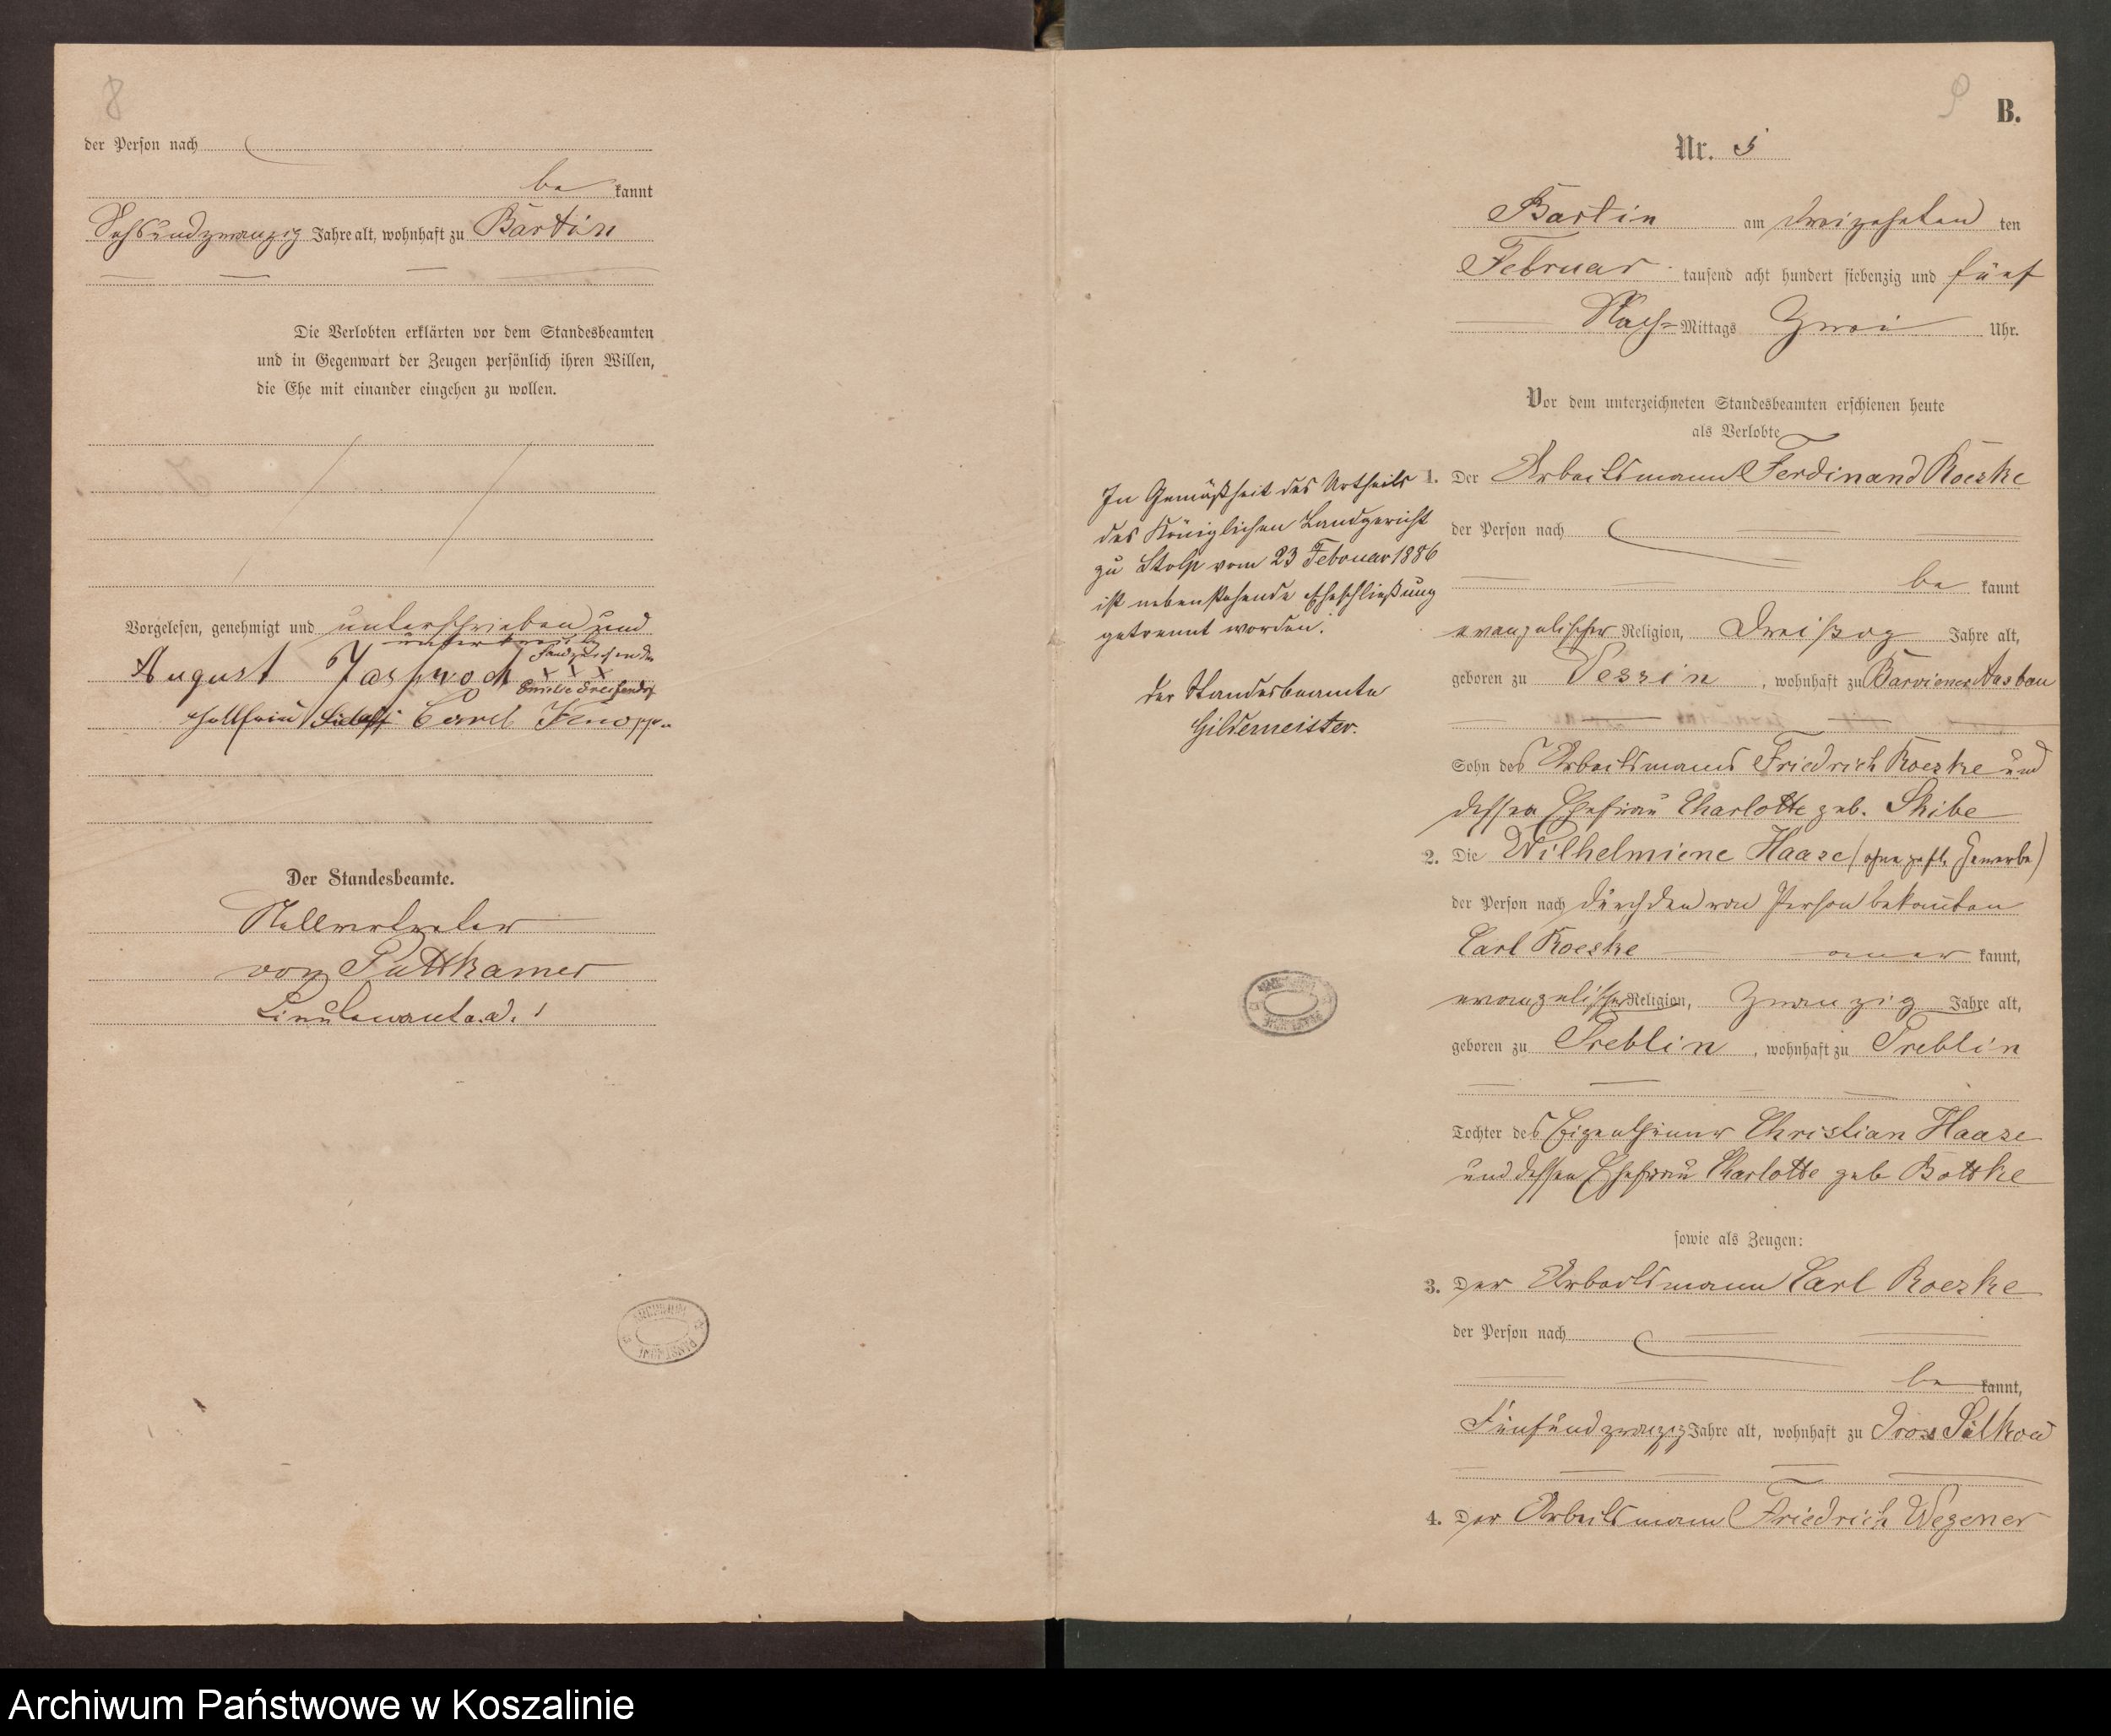 8
der Person nach
be kannt
Sechsundzwanzig Jahre alt, wohnhaft zu Bartin
Die Verlobten erklärten vor dem Standesbeamten
und in Gegenwart der Zeugen persönlich ihren Willen,
die Ehe mit einander eingehen zu wollen.
Vorgelesen, genehmigt und unterschrieben und
unterkreuzt
Handzeichen der
August Jaschwoch X X X
Emilie
Carl Knopp
Der Standesbeamte.
Stellvertreter
von Puttkamer
Lieutenant a. d.
9
B.
Nr. 5
Bartin am dreizehnten ten
Februar tausend acht hundert siebenzig und fünf
Nach-Mittags Zwei Uhr.
Vor dem unterzeichneten Standesbeamten erschienen heute
als Verlobte
1. Der Arbeitsmann Ferdinand Koeske
der Person nach
be kannt
evangelischer Religion, Dreißig Jahre alt,
geboren zu Vessin, wohnhaft zu Barviener Ausbau
Sohn des Arbeitsmanns Friedrich Koeske und
dessen Ehefrau Charlotte geb. Skibe
2. Die Wilhelmiene Haase (ohne Gewerbe)
der Person nach durch den von Person bekannten
Carl Koeske kannt,
evangelischer Religion, Zwanzig Jahre alt,
geboren zu Treblin, wohnhaft zu Treblin
Tochter des Eigenthümer Christian Haase
und dessen Ehefrau Charlotte geb Bottke
sowie als Zeugen:
3. Der Arbeitsmann Carl Koeske
der Person nach
be kannt,
Fünfundzwanzig Jahre alt, wohnhaft zu Gross Silkow
4. Der Arbeitsmann Friedrich Wegener
In Gemäßheit des Urtheils
des Königlichen Landgericht
zu Stolp vom 23 Februar 1886
ist nebenstehende Eheschließung
getrennt worden.
Der Standesbeamte
Gildemeister.
Archiwum Państwowe w Koszalinie